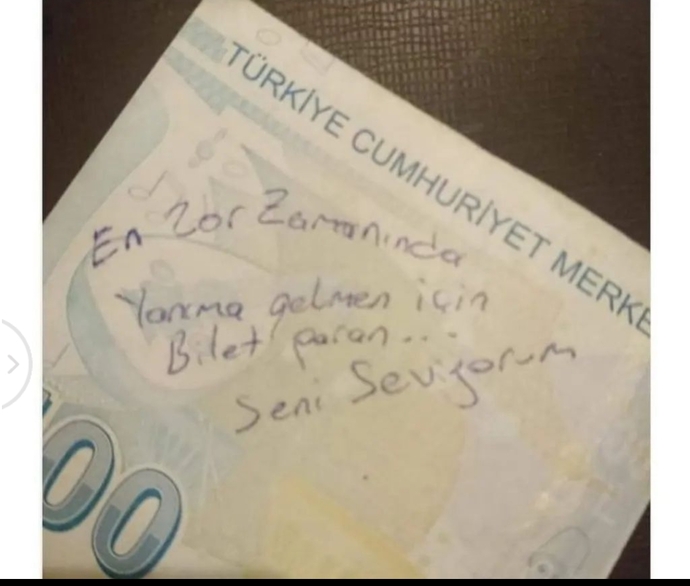 TÜRKİYE CUMHURİYET MERKE
En zor zamanında
Yanıma gelmen için
Bilet paran...
Seni Seviyorum
00